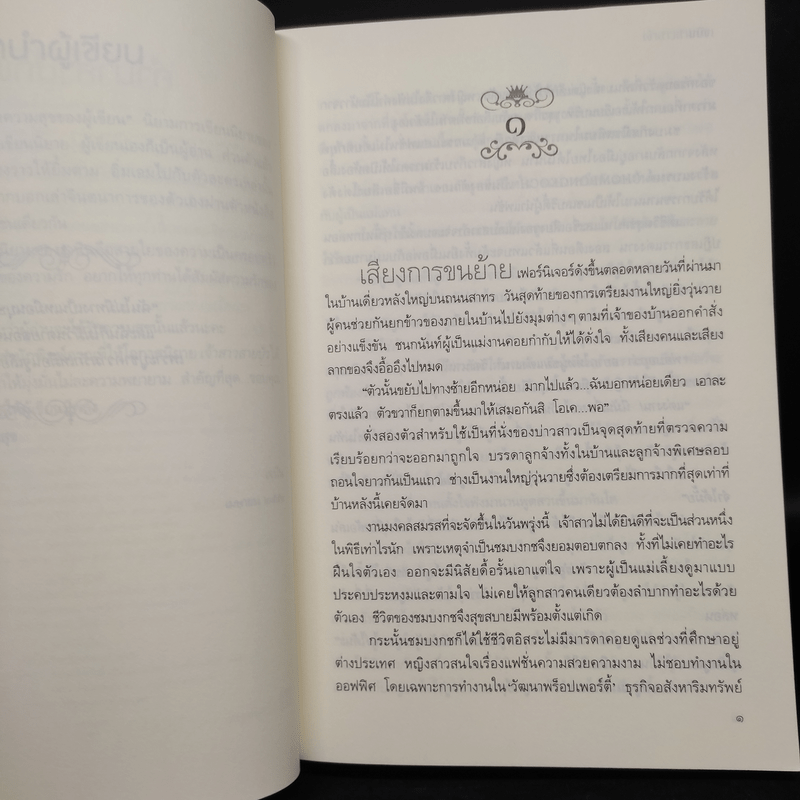 ๑
เสียงการขนย้าย เฟอร์นิเจอร์ดังขึ้นตลอดหลายวันที่ผ่านมา
ในบ้านเดี่ยวหลังใหญ่บนถนนสาทร วันสุดท้ายของการเตรียมงานใหญ่ยิ่งวุ่นวาย
ผู้คนช่วยกันยกข้าวของภายในบ้านไปยังมุมต่าง ๆ ตามที่เจ้าของบ้านออกคำสั่ง
อย่างแข็งขัน ชนกนันท์ผู้เป็นแม่งานคอยกำกับให้ได้ดั่งใจ ทั้งเสียงคนและเสียง
ลากของจึงอื้ออึงไปหมด
“ตัวนั้นขยับไปทางซ้ายอีกหน่อย มากไปแล้ว...ฉันบอกหน่อยเดียว เอาละ
ตรงแล้ว ตัวขวาก็ยกตามขึ้นมาให้เสมอกันสิ โอเค...พอ”
ตั่งสองตัวสำหรับใช้เป็นที่นั่งของบ่าวสาวเป็นจุดสุดท้ายที่ตรวจความ
เรียบร้อยกว่าจะออกมาถูกใจ บรรดาลูกจ้างทั้งในบ้านและลูกจ้างพิเศษลอบ
ถอนใจยาวกันเป็นแถว ช่างเป็นงานใหญ่วุ่นวายซึ่งต้องเตรียมการมากที่สุดเท่าที่
บ้านหลังนี้เคยจัดมา
งานมงคลสมรสที่จะจัดขึ้นในวันพรุ่งนี้ เจ้าสาวไม่ได้ยินดีที่จะเป็นส่วนหนึ่ง
ในพิธีเท่าไรนัก เพราะเหตุจำเป็นชมบงกชจึงยอมตอบตกลง ทั้งที่ไม่เคยทำอะไร
ฝืนใจตัวเอง ออกจะมีนิสัยดื้อรั้นเอาแต่ใจ เพราะผู้เป็นแม่เลี้ยงดูมาแบบ
ประคบประหงมและตามใจ ไม่เคยให้ลูกสาวคนเดียวต้องลำบากทำอะไรด้วย
ตัวเอง ชีวิตของชมบงกชจึงสุขสบายมีพร้อมตั้งแต่เกิด
กระนั้นชมบงกชก็ได้ใช้ชีวิตอิสระไม่มีมารดาคอยดูแลช่วงที่ศึกษาอยู่
ต่างประเทศ หญิงสาวสนใจเรื่องแฟชั่นความสวยความงาม ไม่ชอบทำงานใน
ออฟฟิศ โดยเฉพาะการทำงานใน ‘วัฒนาพร็อปเพอร์ตี้’ ธุรกิจอสังหาริมทรัพย์
๑